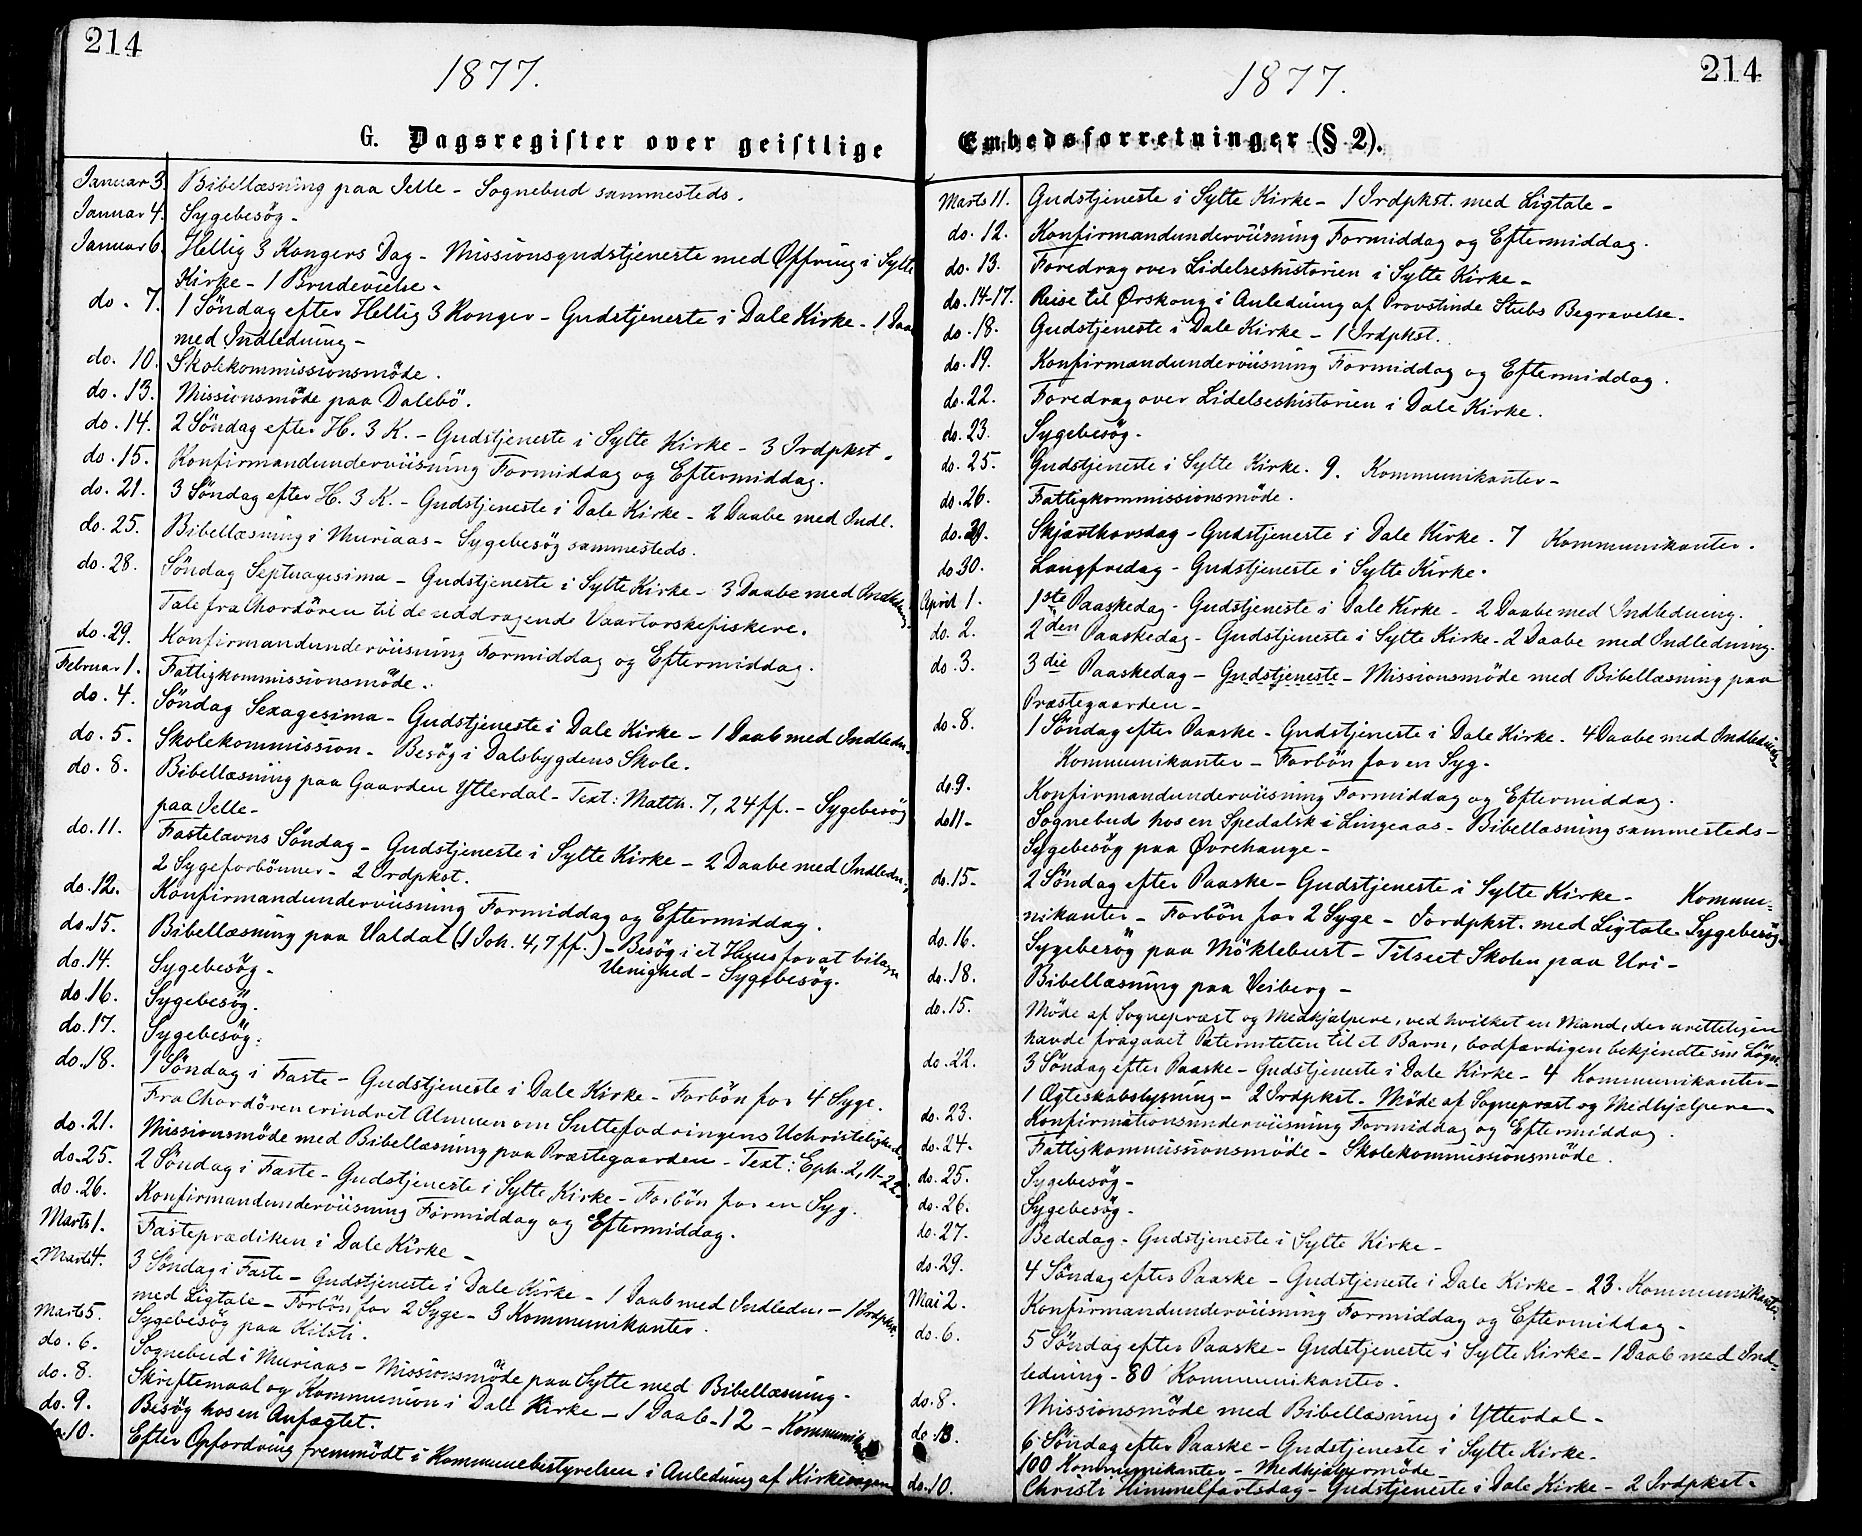 214
1877.
G. Dagsregister over geistlige
Januar 3. Bibellæsning paa Jelle - Sognebud sammesteds.
Januar 4. Sygebesög -
Januar 6. Hellig 3 Kongers Dag - Missionsgudstjeneste med Offring i Sylte
Kirke - 1 Brudevielse -
do. 7. 1 Söndag efter Hellig 3 Konger - Gudstjeneste i Dale Kirke - 1 Daab
med Indledning -
do. 10. Skolekommissionsmöde.
do. 13. Missionsmöde paa Dalebö.
do. 14. 2 Söndag efter H. 3 K. - Gudstjeneste i Sylte Kirke - 3 Jrdpkst.
do. 15. Konfirmandunderviisning Formiddag og Eftermiddag.
do. 21. 3 Söndag efter H. 3 K. - Gudstjeneste i Dale Kirke - 2 Daabe med Indl.
do. 25. Bibellæsning i Muriaas - Sygebesög sammesteds.
do. 28. Söndag Septuagesima - Gudstjeneste i Sylte Kirke - 3 Daabe med Indledning
Tale fra Chordören til de uddragende Vaartorskefiskere.
do. 29. Konfirmandunderviisning Formiddag og Eftermiddag.
Februar 1. Fattigkommissionsmöde.
do. 4. Söndag Sexagesima - Gudstjeneste i Dale Kirke - 1 Daab med Indledn.
do. 5. Skolekommission - Besög i Dalsbygdens Skole.
do. 8. Bibellæsning paa Gaarden Ytterdal - Text: Matth. 7, 24 ff. - Sygebesög
paa Jelle -
do. 11. Fastelavns Söndag - Gudstjeneste i Sylte Kirke - 2 Daabe med Indledn.
2 Sygeforbönner - 2 Jrdpkst.
do. 12. Konfirmandunderviisning Formiddag og Eftermiddag.
do. 15. Bibellæsning paa Valdal (1 Joh. 4, 7 ff.) - Besög i et Huus for at bilægge
Uenighed - Sygebesög.
do. 14. Sygebesög -
do. 16. Sygebesög.
do. 17. Sygebesög.
do. 18. 1 Söndag i Faste - Gudstjeneste i Dale Kirke - Forbön for 4 Syge.
Fra Chordören erindret Almuen om Suttefodringens Uchristelighed.
do. 21. Missionsmöde med Bibellæsning paa Præstegaarden - Text: Eph. 2, 11-22.
do. 25. 2 Söndag i Faste - Gudstjeneste i Sylte Kirke - Forbön for en Syg.
do. 26. Konfirmandunderviisning Formiddag og Eftermiddag.
Marts 1. Fasteprædiken i Dale Kirke -
Marts 4. 3 Söndag i Faste - Gudstjeneste i Dale Kirke - 1 Daab med Indledn - 1 Jrdpkst.
med Ligtale - Forbön for 2 Syge - 3 Kommunikanter.
Marts 5. Sygebesög paa Kilsti.
do. 6. Sognebud i Muriaas - Missionsmöde paa Sylte med Bibellæsning -
do. 8. Skriftemaal og Kommunion i Dale Kirke - 1 Daab - 12 - Kommunik
do. 9. Besög hos en Anfægtet.
do. 10. Efter Opfordring fremmödt i Kommunebestyrelsen i Anledning af Kirkesagen
214
1877.
Embedsforretninger (§ 2).
Marts 11. Gudstjeneste i Sylte Kirke - 1 Jrdpkst. med Ligtale -
do. 12. Konfirmandunderviisning Formiddag og Eftermiddag.
do. 13. Foredrag over Lidelseshistorien i Sylte Kirke -
do. 14-17. Reise til Ørskoug i Anledning af Provstinde Stubs Begravelse -
do. 18. Gudstjeneste i Dale Kirke - 1 Jrdpkst.
do. 19. Konfirmandunderviisning Formiddag og Eftermiddag.
do. 22. Foredrag over Lidelseshistorien i Dale Kirke.
do. 23. Sygebesög -
do. 25. Gudstjeneste i Sylte Kirke. 9. Kommunikanter -
do. 26. Fattigkommissionsmöde.
do. 29. Skjærthorsdag - Gudstjeneste i Dale Kirke - 7 Kommunikanter.
do 30. Langfredag - Gudstjeneste i Sylte Kirke.
April 1. 1ste Paaskedag - Gudstjeneste i Dale Kirke - 2 Daabe med Indledning.
do. 2. 2den Paaskedag - Gudstjeneste i Sylte Kirke - 2 Daabe med Indledning.
do. 3. 3die Paaskedag - Gudstjeneste - Missionsmöde med Bibellæsning paa
Præstegaarden -
do. 8. 1 Söndag efter Paaske - Gudstjeneste i Dale Kirke - 4 Daabe med Indledning -
Kommunikanter - Forbön for en Syg.
do. 9. Konfirmandunderviisning Formiddag og Eftermiddag.
do 11 - Sognebud hos en Spedalsk i Lingeaas - Bibellæsning sammesteds -
Sygebesög paa Øvrehauge -
do. 15 - 2 Söndag efter Paaske - Gudstjeneste i Sylte Kirke - Kommu-
nikanter - Forbön for 2 Syge - Jordpkst. med Ligtale - Sygebesög
do. 16. Sygebesög paa Möklebust - Tilseet Skolen paa Uri -
do. 18. Bibellæsning paa Veiberg -
do. 15. Möde af Sognepræst og Medhjælpere, ved hvilket en Mand, der uretteligen
havde fragaaet Paterniteten til et Barn, bodfærdigen bekjendte sin Lögn.
do. 22. 3 Söndag efter Paaske - Gudstjeneste i Dale Kirke - 4 Kommunikanter -
1 Ægteskabslysning - 2 Jrdpkst. - Möde af Sognepræst og Medhjælpere -
do. 23. Konfirmationsunderviisning Formiddag og Eftermiddag.
do. 24 - Fattigkommissionsmöde - Skolekommissionsmöde.
do. 25. Sygebesög -
do. 26. Sygebesög -
do. 27. Bededag - Gudstjeneste i Sylte Kirke -
do. 29. 4 Söndag efter Paaske - Gudstjeneste i Dale Kirke - 23. Kommunikanter
Mai 2. Konfirmandunderviisning Formiddag og Eftermiddag -
do. 6. 5 Söndag efter Paaske - Gudstjeneste i Sylte Kirke - 1 Daab med Ind-
ledning - 80 Kommunikanter.
do. 8. Missionsmöde med Bibellæsning i Ytterdal -
do 13. 6 Söndag efter Paaske - Gudstjeneste i Sylte Kirke -
100 Kommunikanter - Medhjælpermöde -
do. 10. Christi Himmelfartsdag - Gudstjeneste i Dale Kirke - 2 Jrdpkst.